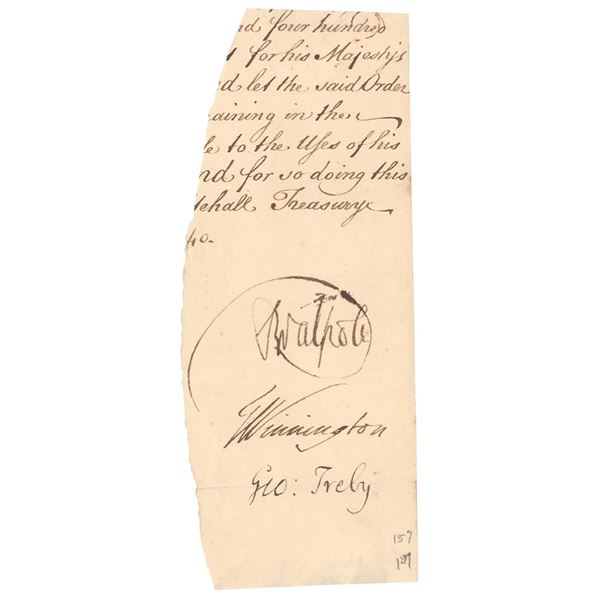 nd four hundred
t for his Majesty's
nd let the said Order
aining in the
le to the Uses of his
nd for so doing this
tehall Treasury
40.
RWalpole
TWinnington
Geo: Treby
157